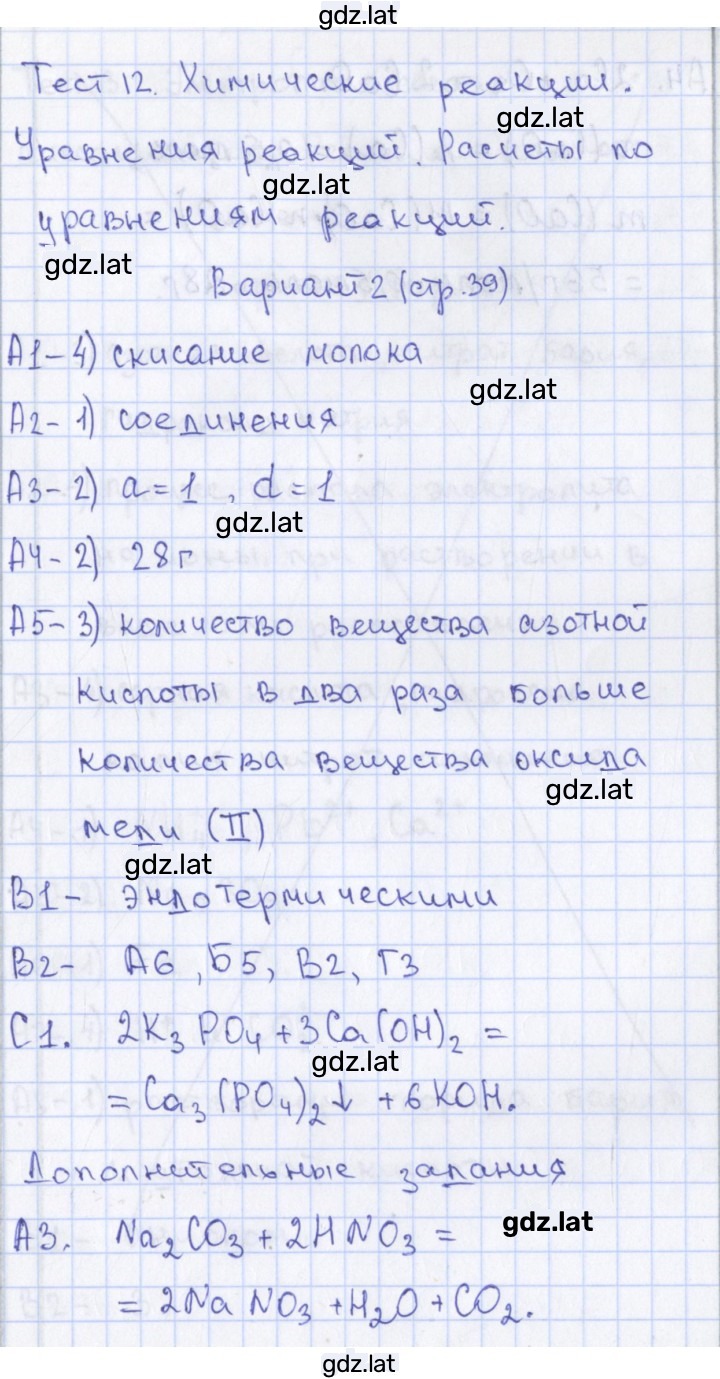 gdz.lat
Тест 12. Химические реакции.
gdz.lat
Уравнения реакций. Расчеты по
gdz.lat
уравнениям реакций.
gdz.lat
Вариант 2 (стр. 39).
А1 - 4) скисание молока
gdz.lat
А2 - 1) соединения
А3 - 2) a = 1, d = 1
gdz.lat
А4 - 2) 28 г
А5 - 3) количество вещества азотной
кислоты в два раза больше
количества вещества оксида
gdz.lat
меди (II)
gdz.lat
В1 - эндотермическими
В2 - А6, Б5, В2, Г3
С1. 2K₃PO₄ + 3Ca(OH)₂ =
gdz.lat
= Ca₃(PO₄)₂↓ + 6KOH.
Дополнительные задания
gdz.lat
А3. Na₂CO₃ + 2HNO₃ =
= 2NaNO₃ + H₂O + CO₂.
gdz.lat